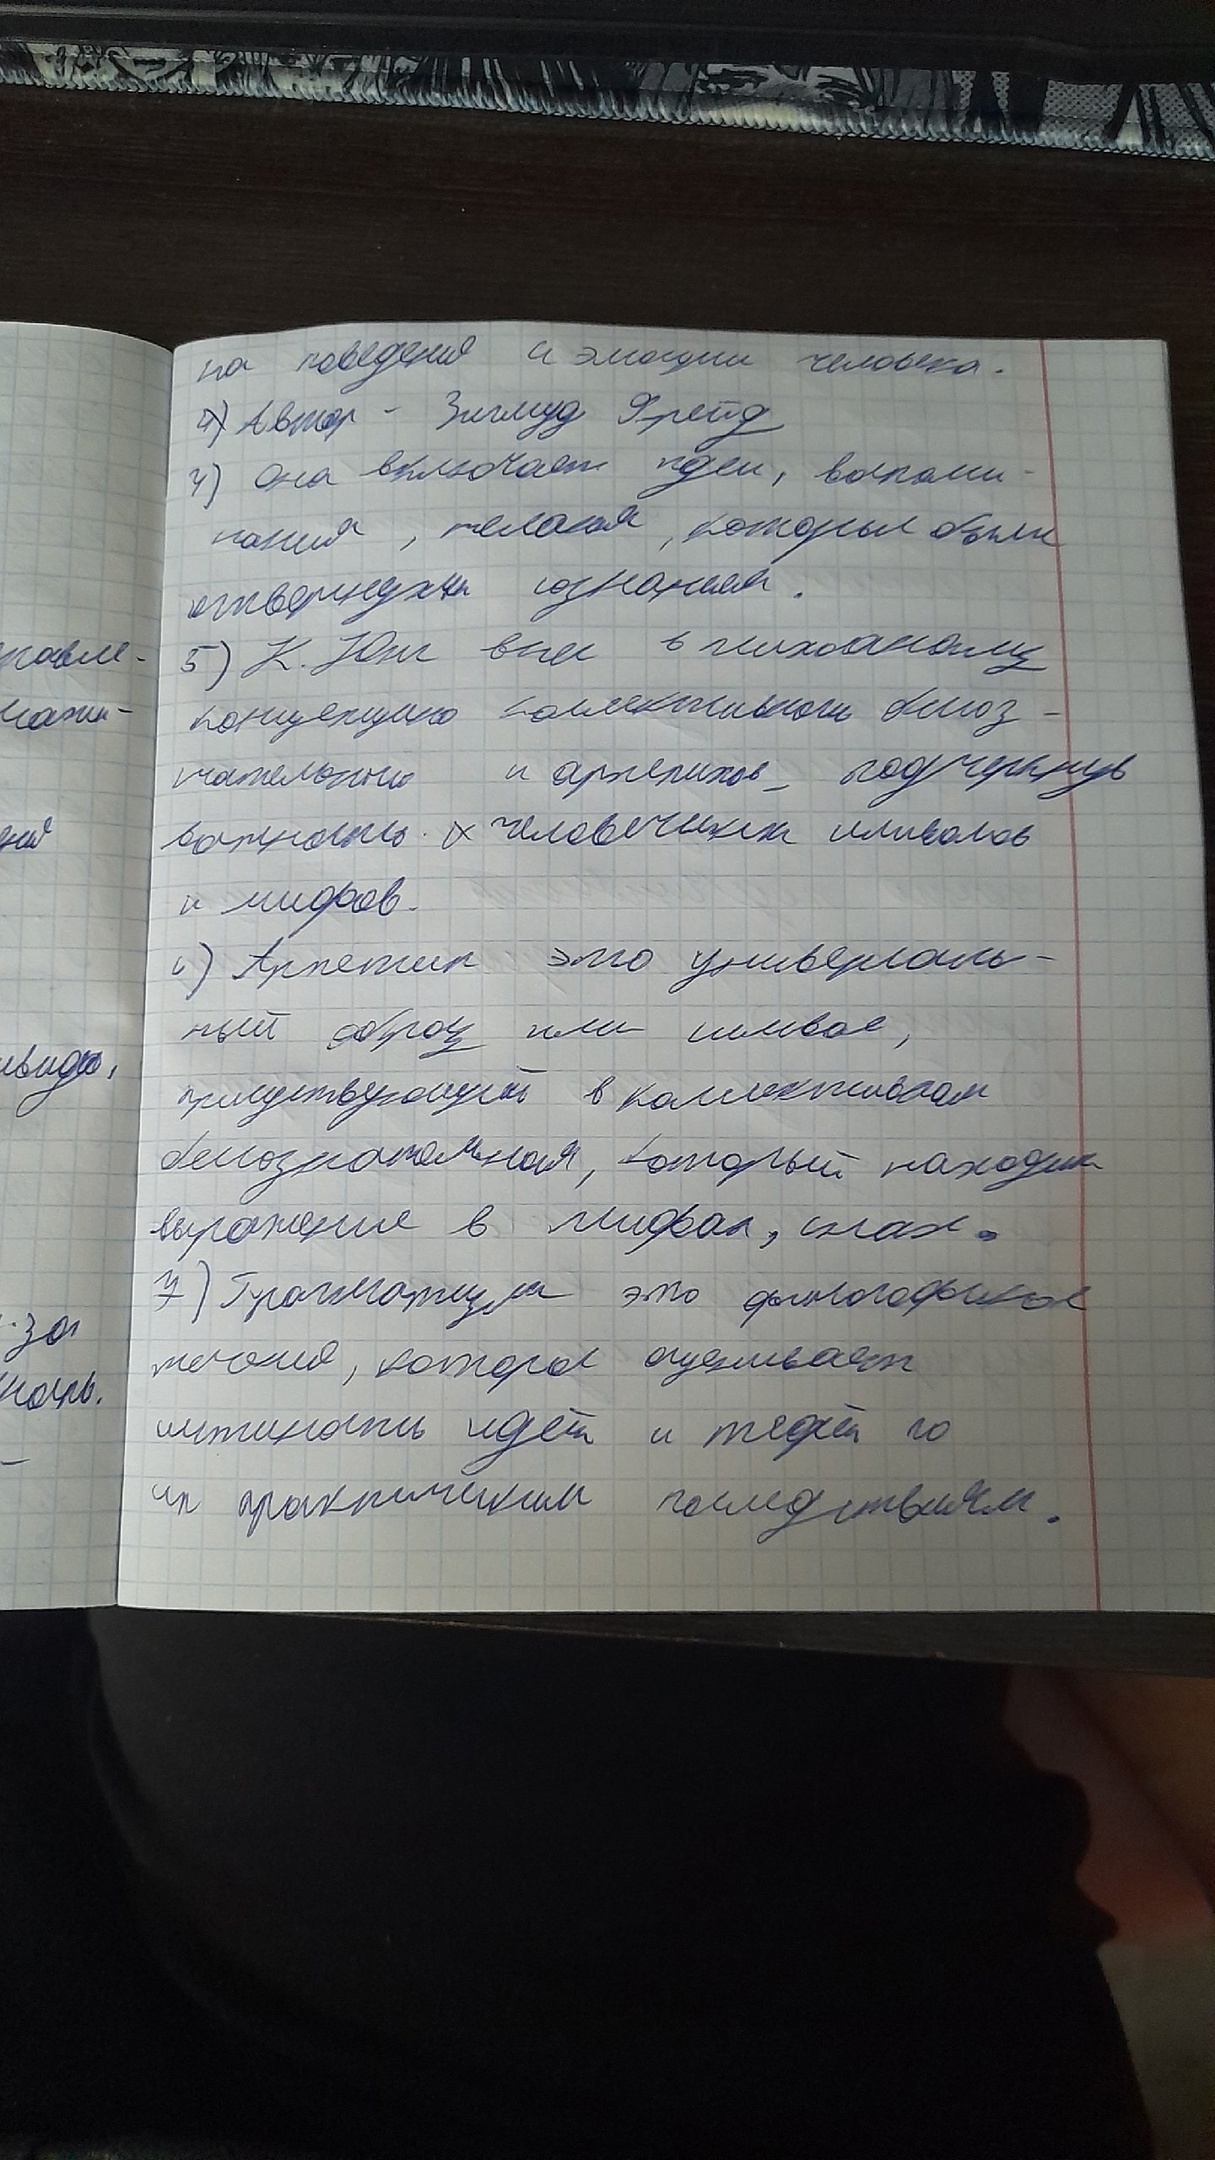 на поведения и эмоции человека.
4) Автор - Зигмуд Фрейд
4) Она включает идеи, воспоми-
нания, желания, которые были
отвергнуты сознанием.
5) К. Юнг внес в психоанализ
концепцию коллективного бессоз-
нательного и архетипов, подчеркнув
важность человеческих символов
и мифов.
6) Архетип это универсаль-
ный образ или символ,
присутствующий в коллективном
бессознательном, который находит
выражение в мифах, снах.
7) Прагматизм это философское
течения, которое оценивает
истинность идей и теорий по
их практическим последствиям.
правле-
ния
ивиды,
за
ность.